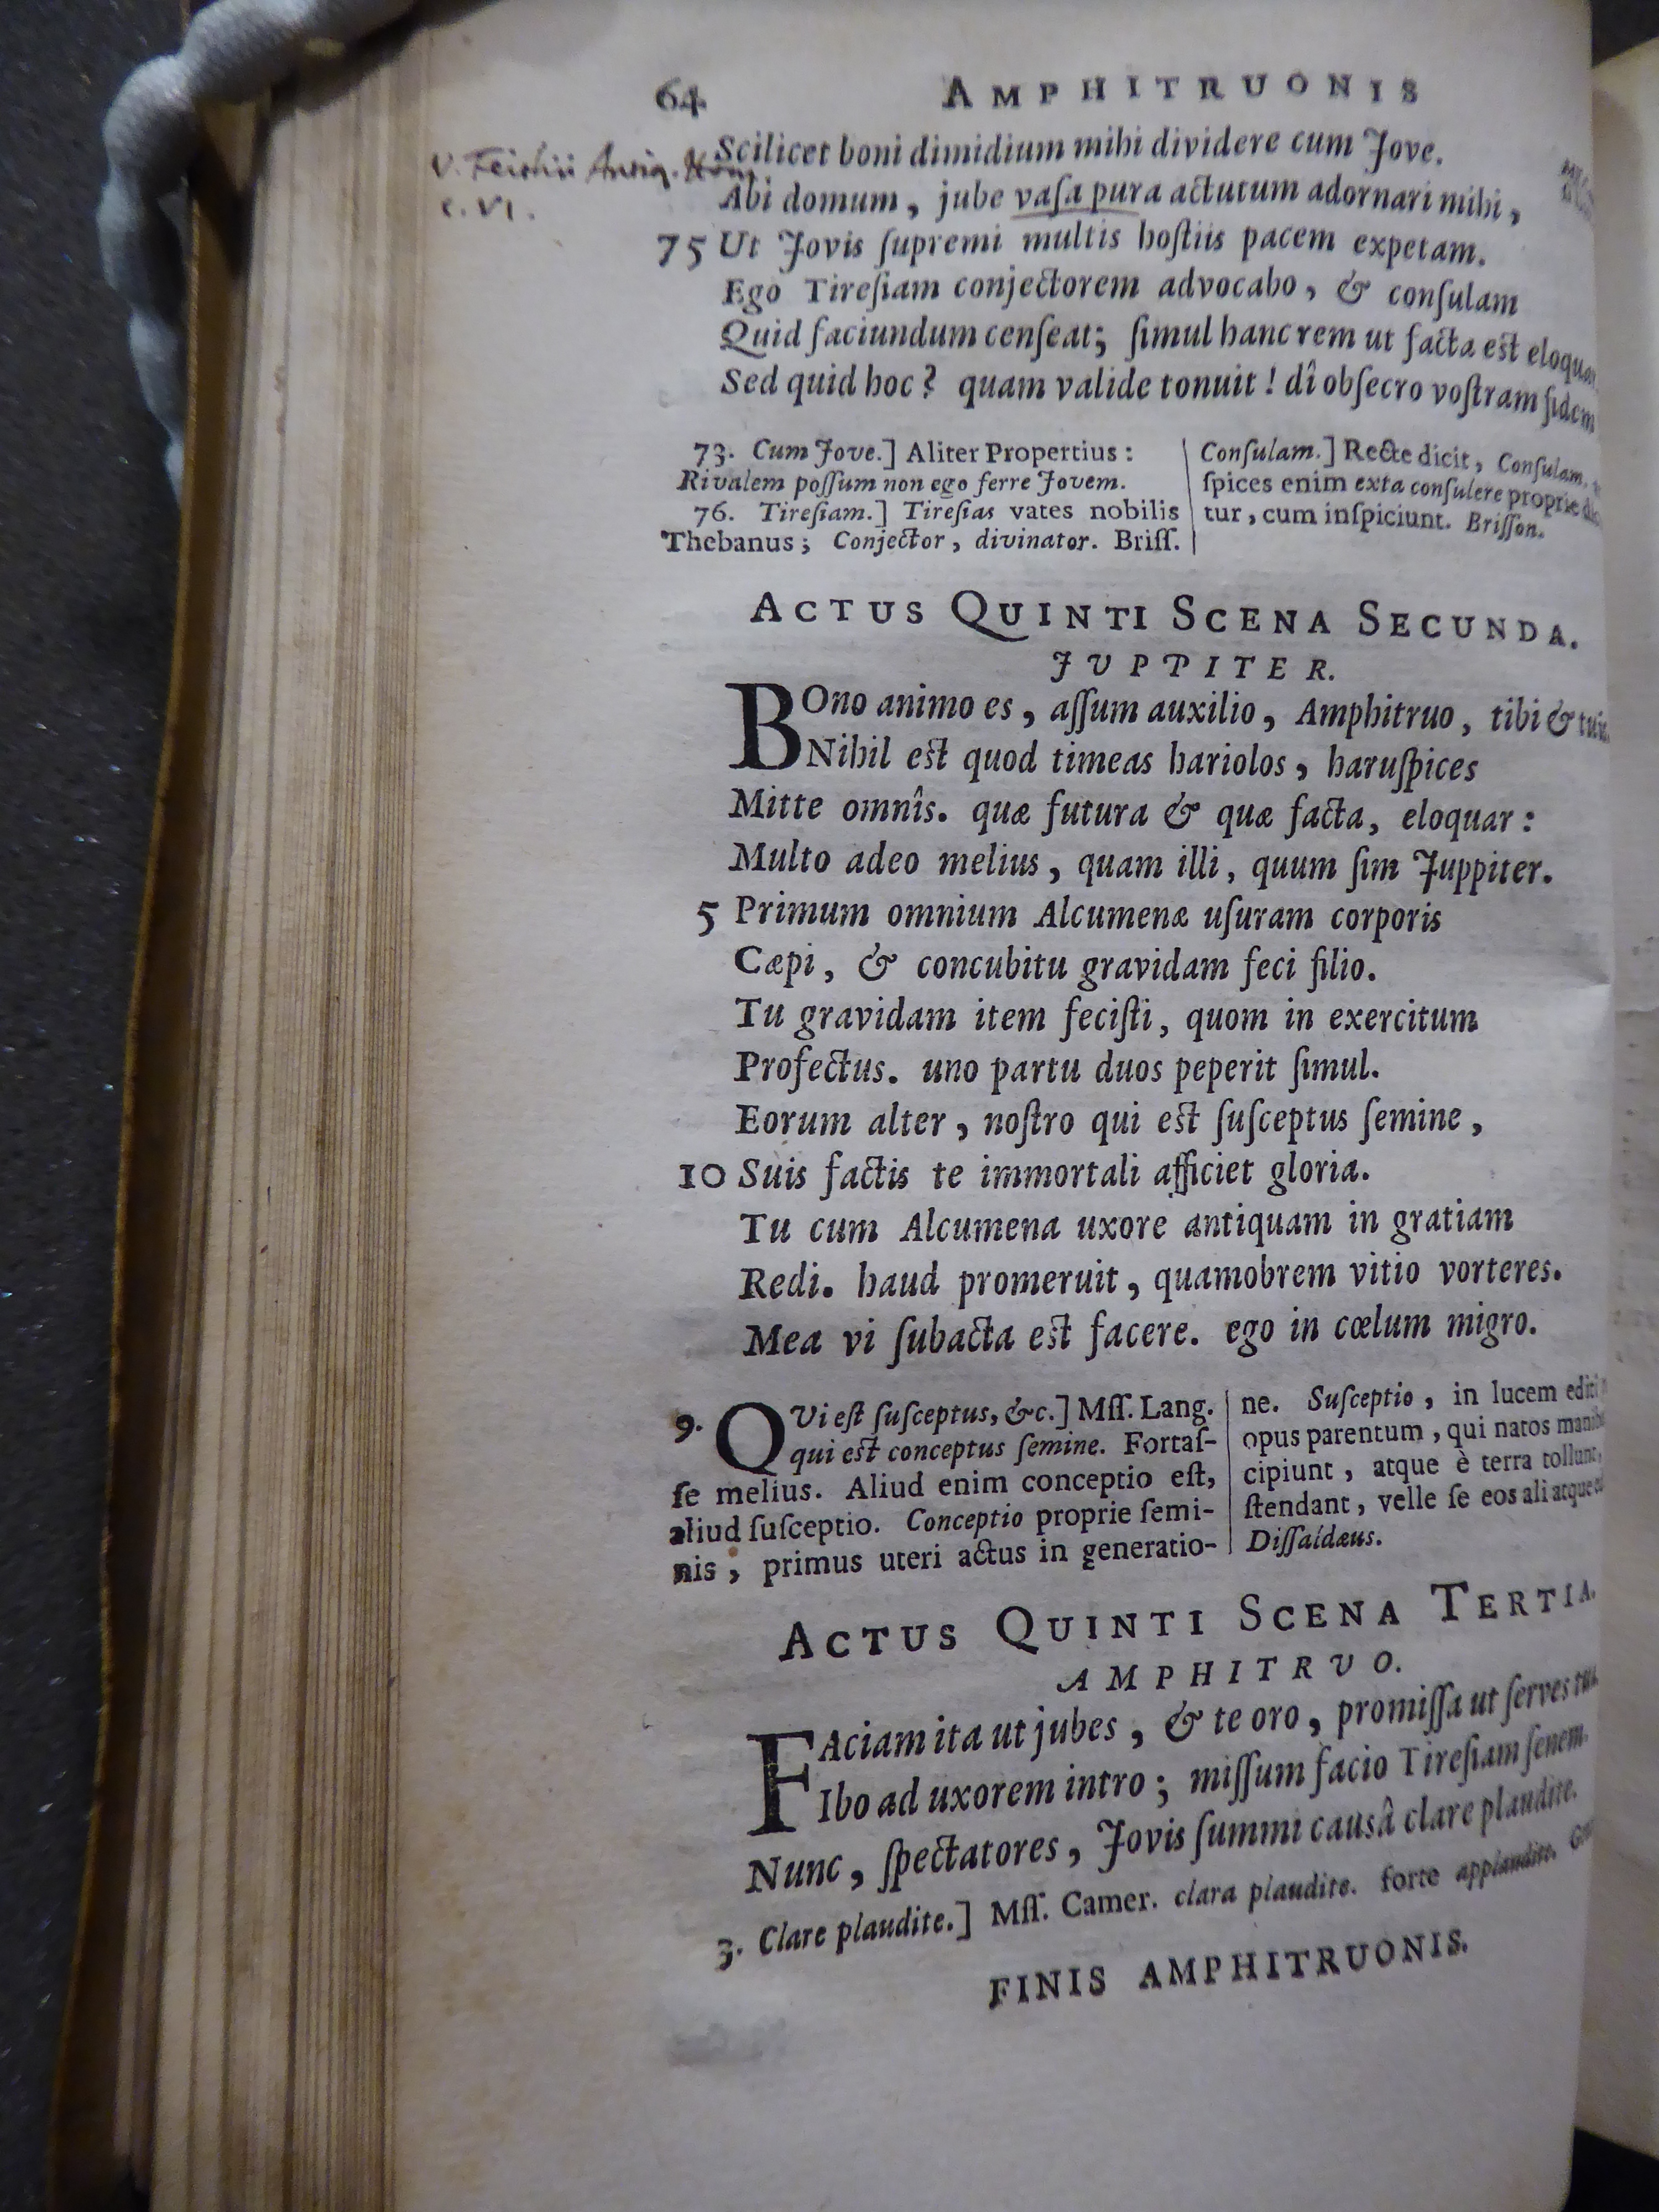 64 AMPHITRUONIS
V. Feithii Antiq. Hom.
c. VI.
Scilicet boni dimidium mihi dividere cum Jove.
Abi domum, jube vaſa pura actutum adornari mihi,
75 Ut Jovis ſupremi multis hoſtiis pacem expetam.
Ego Tireſiam conjectorem advocabo, & conſulam
Quid faciundum cenſeat; ſimul hanc rem ut facta est eloquar
Sed quid hoc? quam valide tonuit! dî obſecro voſtram fidem
73. Cum Jove.] Aliter Propertius:
Rivalem poſſum non ego ferre Jovem.
76. Tireſiam.] Tireſias vates nobilis
Thebanus; Conjector, divinator. Briſſ.
Conſulam.] Recte dicit, Conſulam.
ſpices enim exta conſulere proprie
tur, cum inſpiciunt. Briſſon.
ACTUS QUINTI SCENA SECUNDA.
JUPPITER.
BOno animo es, aſſum auxilio, Amphitruo, tibi & tuis
Nihil est quod timeas hariolos, haruſpices
Mitte omnîs. quæ futura & quæ facta, eloquar:
Multo adeo melius, quam illi, quum ſim Juppiter.
5 Primum omnium Alcumenæ uſuram corporis
Cæpi, & concubitu gravidam feci filio.
Tu gravidam item feciſti, quom in exercitum
Profectus. uno partu duos peperit ſimul.
Eorum alter, noſtro qui est ſuſceptus ſemine,
10 Suis factis te immortali afficiet gloria.
Tu cum Alcumena uxore antiquam in gratiam
Redi. haud promeruit, quamobrem vitio vorteres.
Mea vi ſubacta est facere. ego in cœlum migro.
9. QUi eſt ſuſceptus, &c.] Mſſ. Lang.
qui est conceptus ſemine. Fortaſ-
ſe melius. Aliud enim conceptio eſt,
aliud ſuſceptio. Conceptio proprie ſemi-
nis, primus uteri actus in generatio-
ne. Suſceptio, in lucem editi
opus parentum, qui natos
cipiunt, atque è terra tollunt,
ſtendant, velle ſe eos ali atque
Diſſaldæus.
ACTUS QUINTI SCENA TERTIA.
AMPHITRUO.
FAciam ita ut jubes, & te oro, promiſſa ut ſerves tua
Ibo ad uxorem intro; miſſum facio Tireſiam ſenem.
Nunc, ſpectatores, Jovis ſummi causâ clare plaudite.
3. Clare plaudite.] Mſſ. Camer. clara plaudite. forte applaudite.
FINIS AMPHITRUONIS.